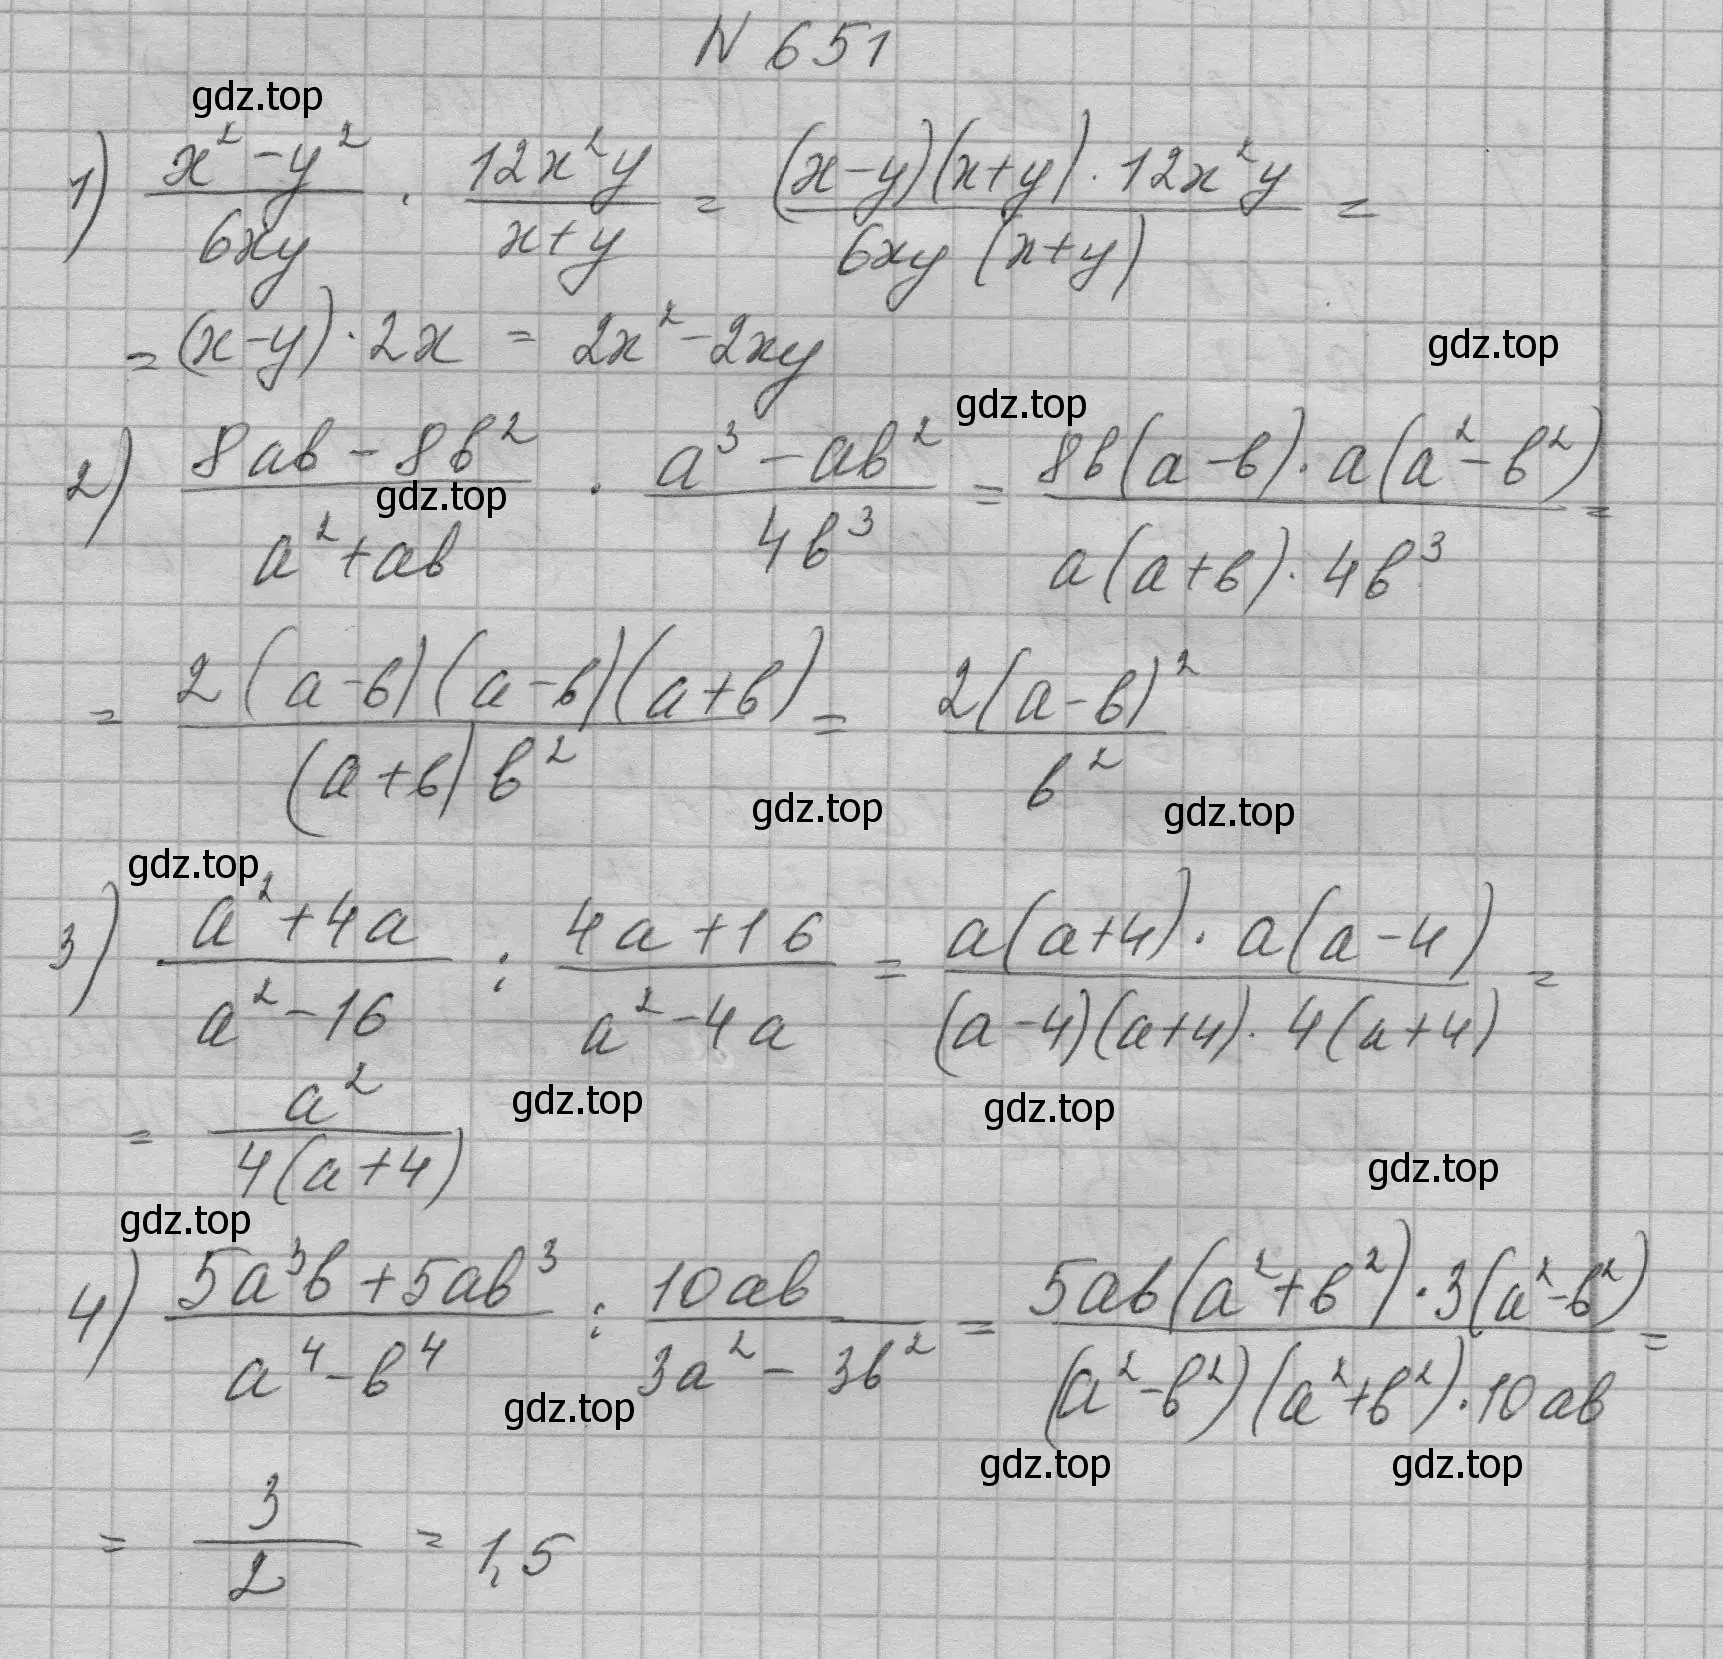 N 651
gdz.top
1) (x² - y²)/(6xy) · (12x²y)/(x+y) = ((x-y)(x+y) · 12x²y)/(6xy (x+y)) =
= (x-y) · 2x = 2x² - 2xy
gdz.top
gdz.top
2) (8ab - 8b²)/(a² + ab) · (a³ - ab²)/(4b³) = (8b(a-b) · a(a² - b²))/(a(a+b) · 4b³) =
gdz.top
= (2(a-b)(a-b)(a+b))/((a+b) b²) = (2(a-b)²)/(b²)
gdz.top gdz.top
gdz.top
3) (a² + 4a)/(a² - 16) : (4a + 16)/(a² - 4a) = (a(a+4) · a(a-4))/((a-4)(a+4) · 4(a+4)) =
= (a²)/(4(a+4))
gdz.top gdz.top
gdz.top
gdz.top
4) (5a³b + 5ab³)/(a⁴ - b⁴) : (10ab)/(3a² - 3b²) = (5ab(a² + b²) · 3(a² - b²))/((a² - b²)(a² + b²) · 10ab) =
gdz.top
gdz.top gdz.top
= 3/2 = 1,5